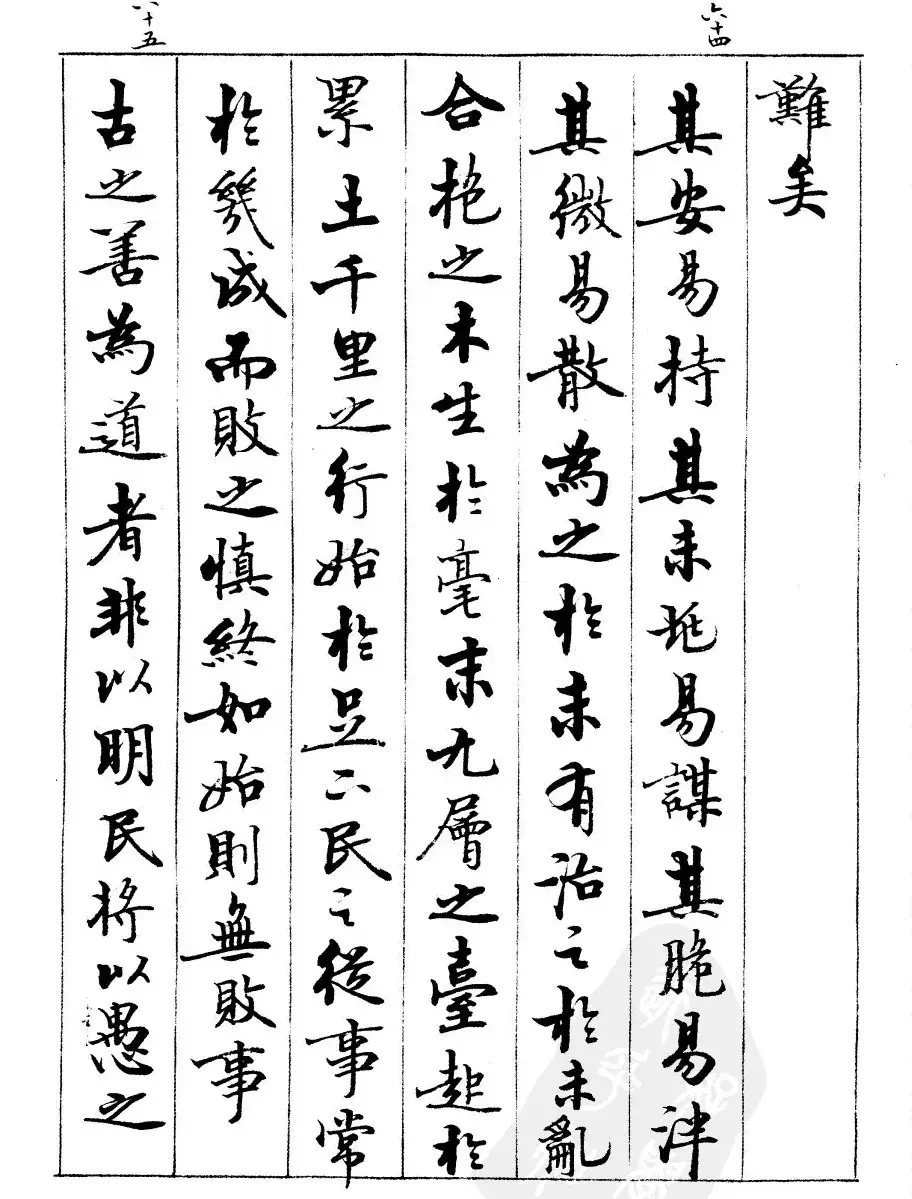 六十四
難矣
其安易持其未兆易謀其脆易泮
其微易散為之於未有治之於未亂
合抱之木生於毫末九層之臺起於
累土千里之行始於足下民之從事常
於幾成而敗之慎終如始則無敗事
六十五
古之善為道者非以明民將以愚之